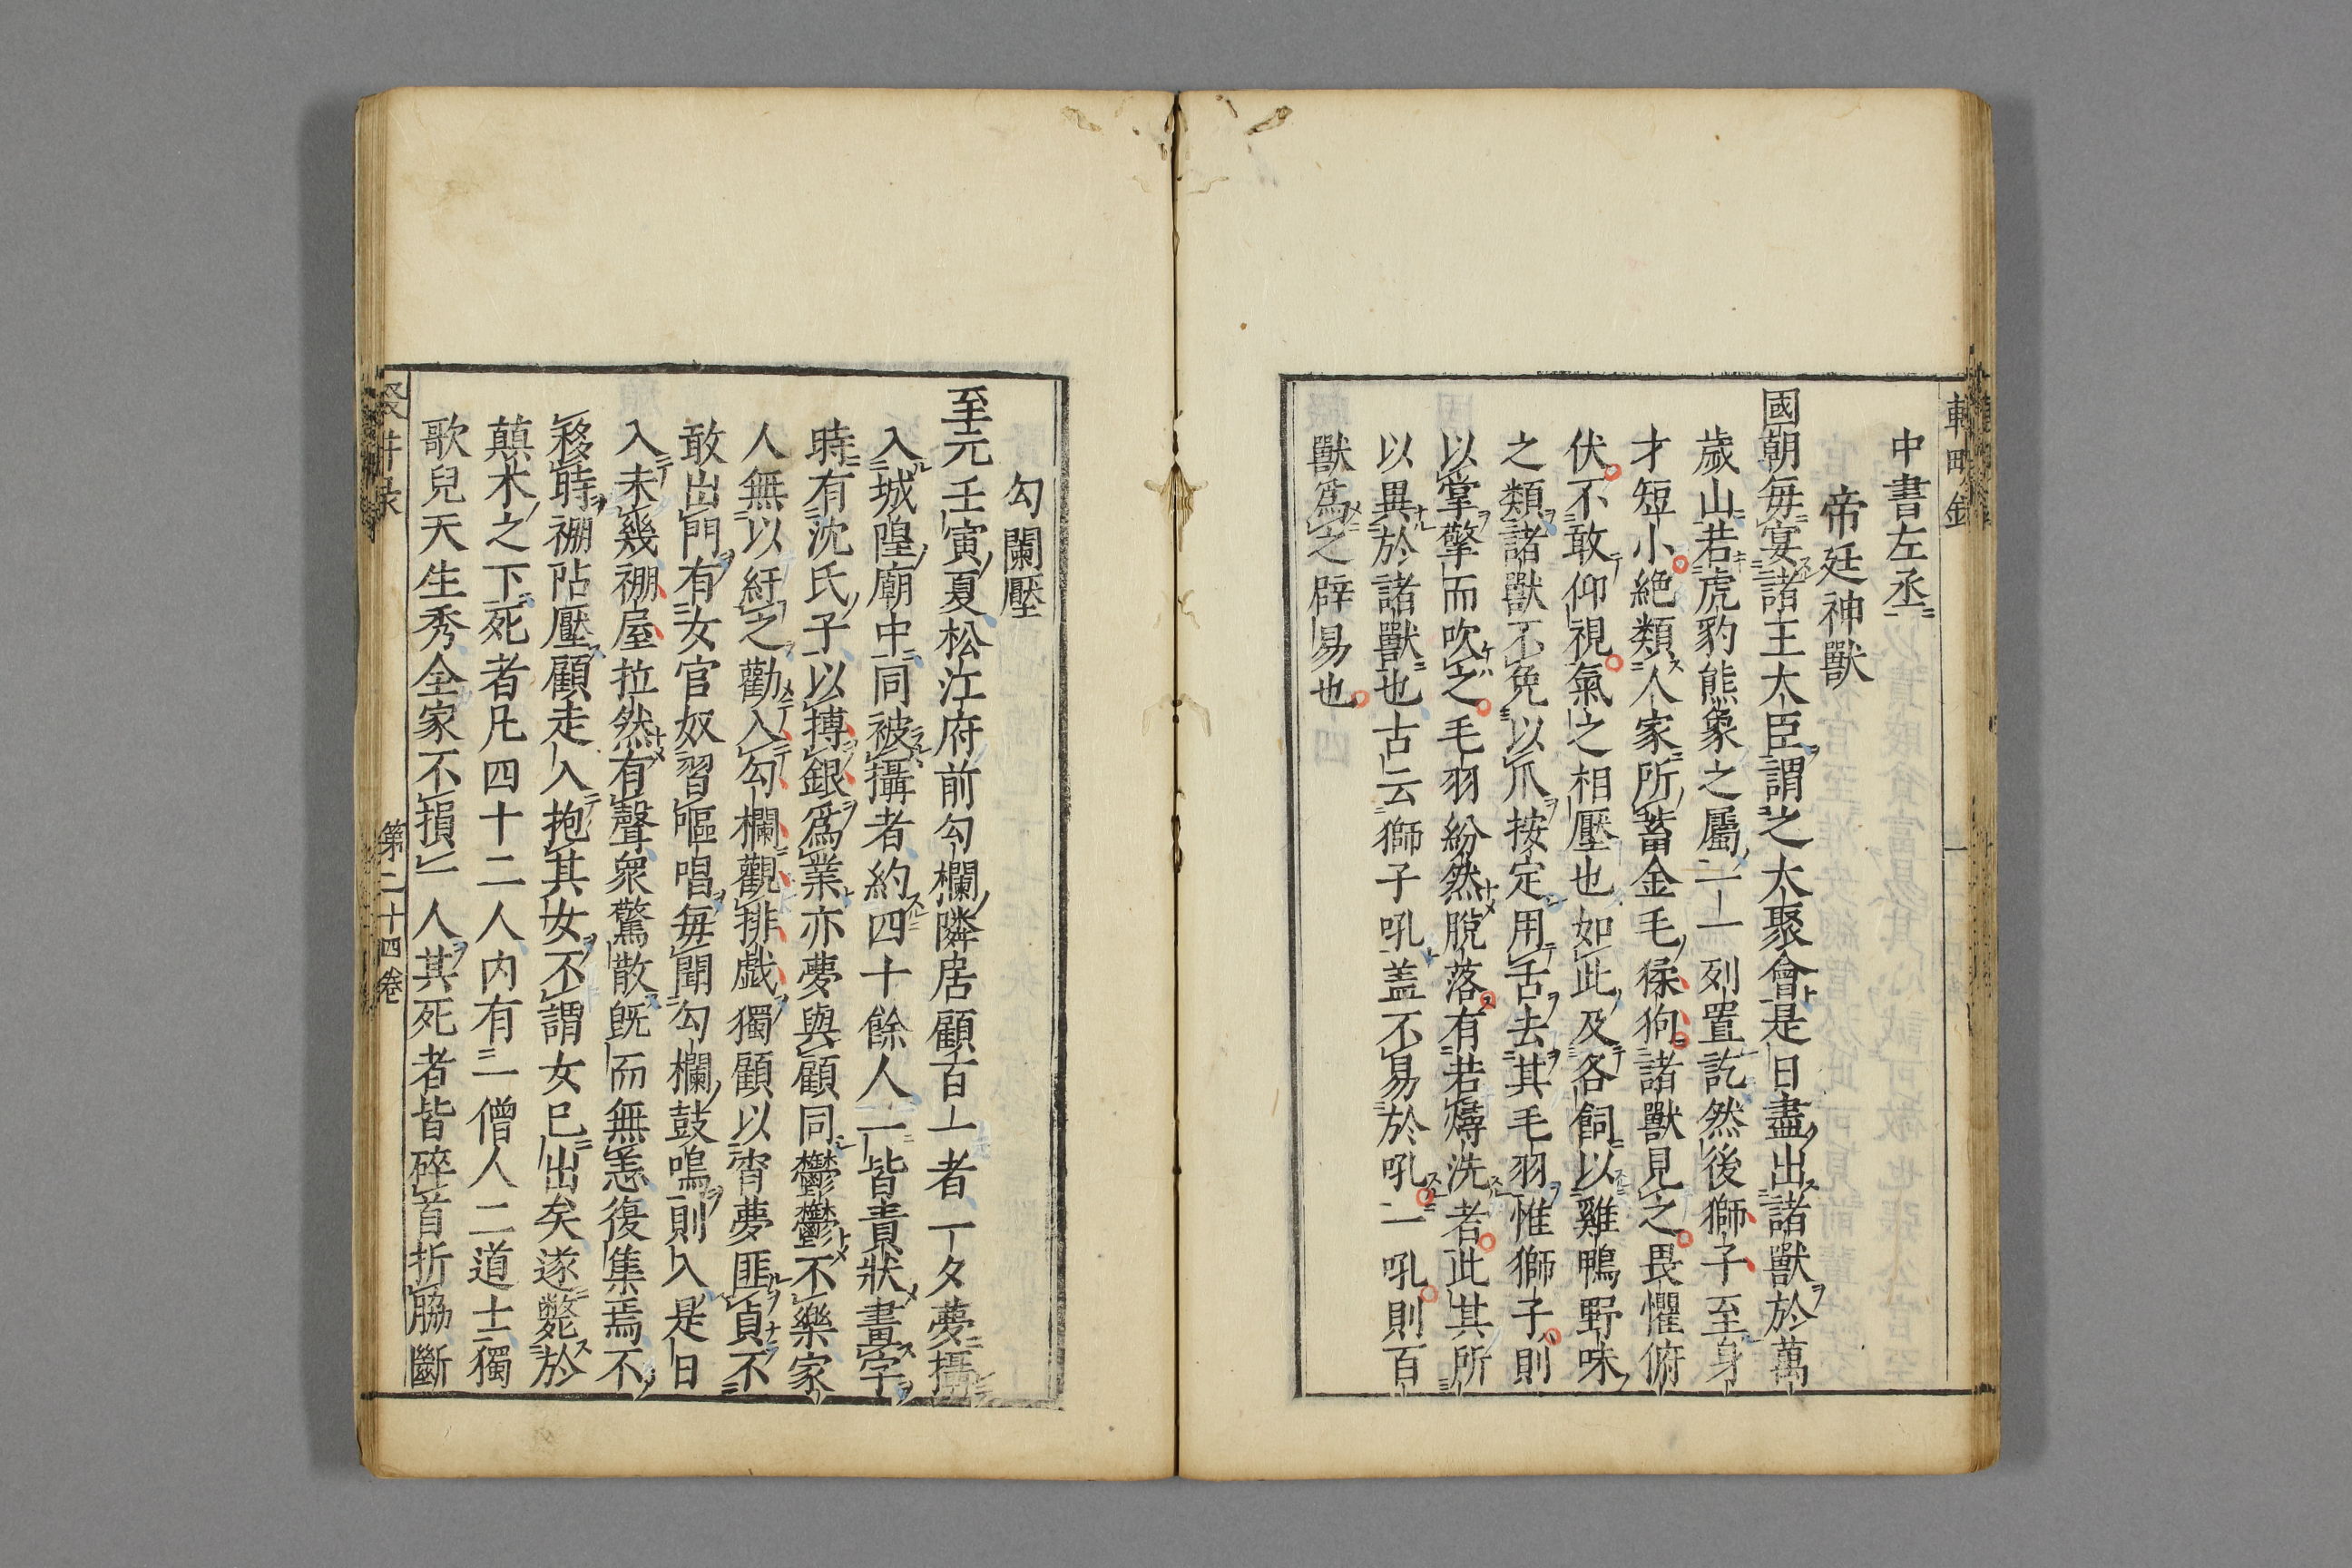 中書左丞
帝廷神獸
國朝每宴諸王大臣謂之大聚會是日盡出諸獸於萬
歲山若虎豹熊象之屬一一列置訖然後獅子至身
才短小絕類人家所蓄金毛猱狗諸獸見之畏懼俯
伏不敢仰視氣之相壓也如此及各飼以雞鴨野味
之類諸獸不免以爪按定用舌去其毛羽惟獅子則
以掌擎而吹之毛羽紛然脫落有若燖洗者此其所
以異於諸獸也古云獅子吼盖不易於吼一吼則百
獸爲之辟易也
勾闌壓
至元壬寅夏松江府前勾欄隣居顧百一者一夕夢攝
入城隍廟中同被攝者約四十餘人一皆責狀畫字
時有沈氏子以搏銀爲業亦夢與顧同鬱鬱不樂家
人無以紓之勸入勾欄觀排戯獨顧以宵夢匪貞不
敢出門有女官奴習嘔唱每聞勾欄鼓鳴則入是日
入未幾棚屋拉然有聲衆驚散旣而無恙復集焉不
移時棚阽壓顧走入抱其女不謂女已出矣遂斃於
蘱木之下死者凡四十二人內有一僧人二道士獨
歌兒天生秀全家不損一人其死者皆碎首折脇斷
第二十四卷